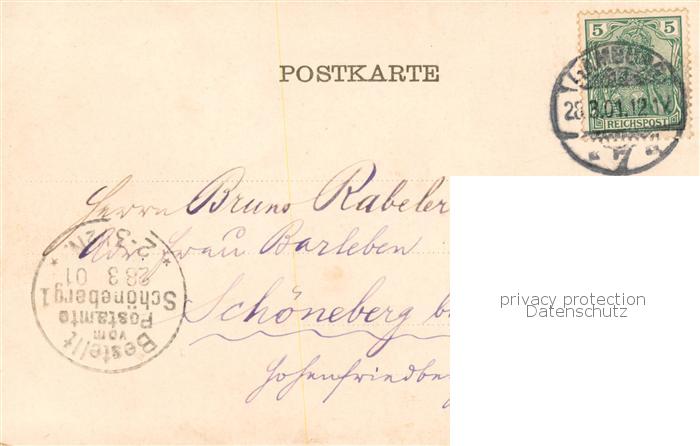 5 5
POSTKARTE
REICHSPOST
28.3.01.12-1V
7
Herrn Bruno Rabeler
Adr. Frau Barleben
Schöneberg b
Hohenfriedbe
Bestellt
vom
Postamte
Schöneberg 1
28 3 01
2-3
privacy protection
Datenschutz